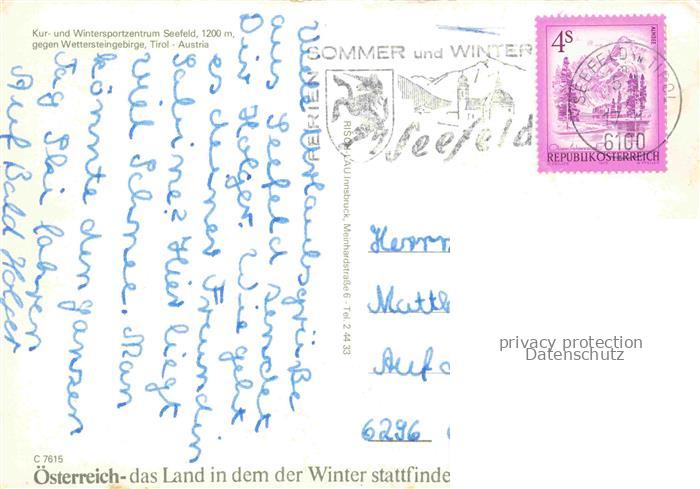 Kur- und Wintersportzentrum Seefeld, 1200 m,
gegen Wettersteingebirge, Tirol - Austria
Viele Urlaubsgrüße
aus Seefeld sendet
Dir Holger. Wie geht
es deiner Freundin
Sabine? Hier liegt
viel Schnee. Man
könnte den ganzen
Tag Ski fahren
Auf Bald Holger
C 7615
Österreich- das Land in dem der Winter stattfinde
RISCH-LAU Innsbruck, Meinhardstraße 6 - Tel. 2 44 33
FERIEN
SOMMER und WINTER
Seefeld
SEEFELD IN TIROL
6100
4 S
ALMSEE
REPUBLIK ÖSTERREICH
Herrn
Matth
Auf d
6296
privacy protection
Datenschutz